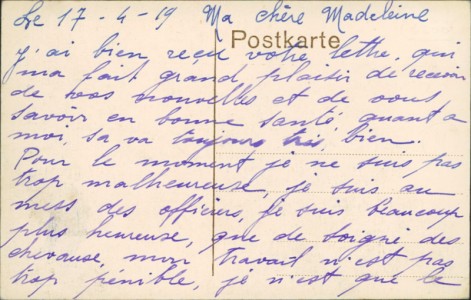 Le 17 - 4 - 19 Ma chère Madeleine
Postkarte
j'ai bien reçu votre lettre, qui
ma fait grand plaisir de recevoir
de vos nouvelles et de vous
savoir en bonne santé, quant a
moi, sa va toujours très, bien.
Pour le moment je ne suis pas
trop malheureuse, je suis au
mess des officiers, je suis beaucoup
plus heureuse, que de soigné des
chevause, mon travail n'est pas
trop pénible, je n'est que le